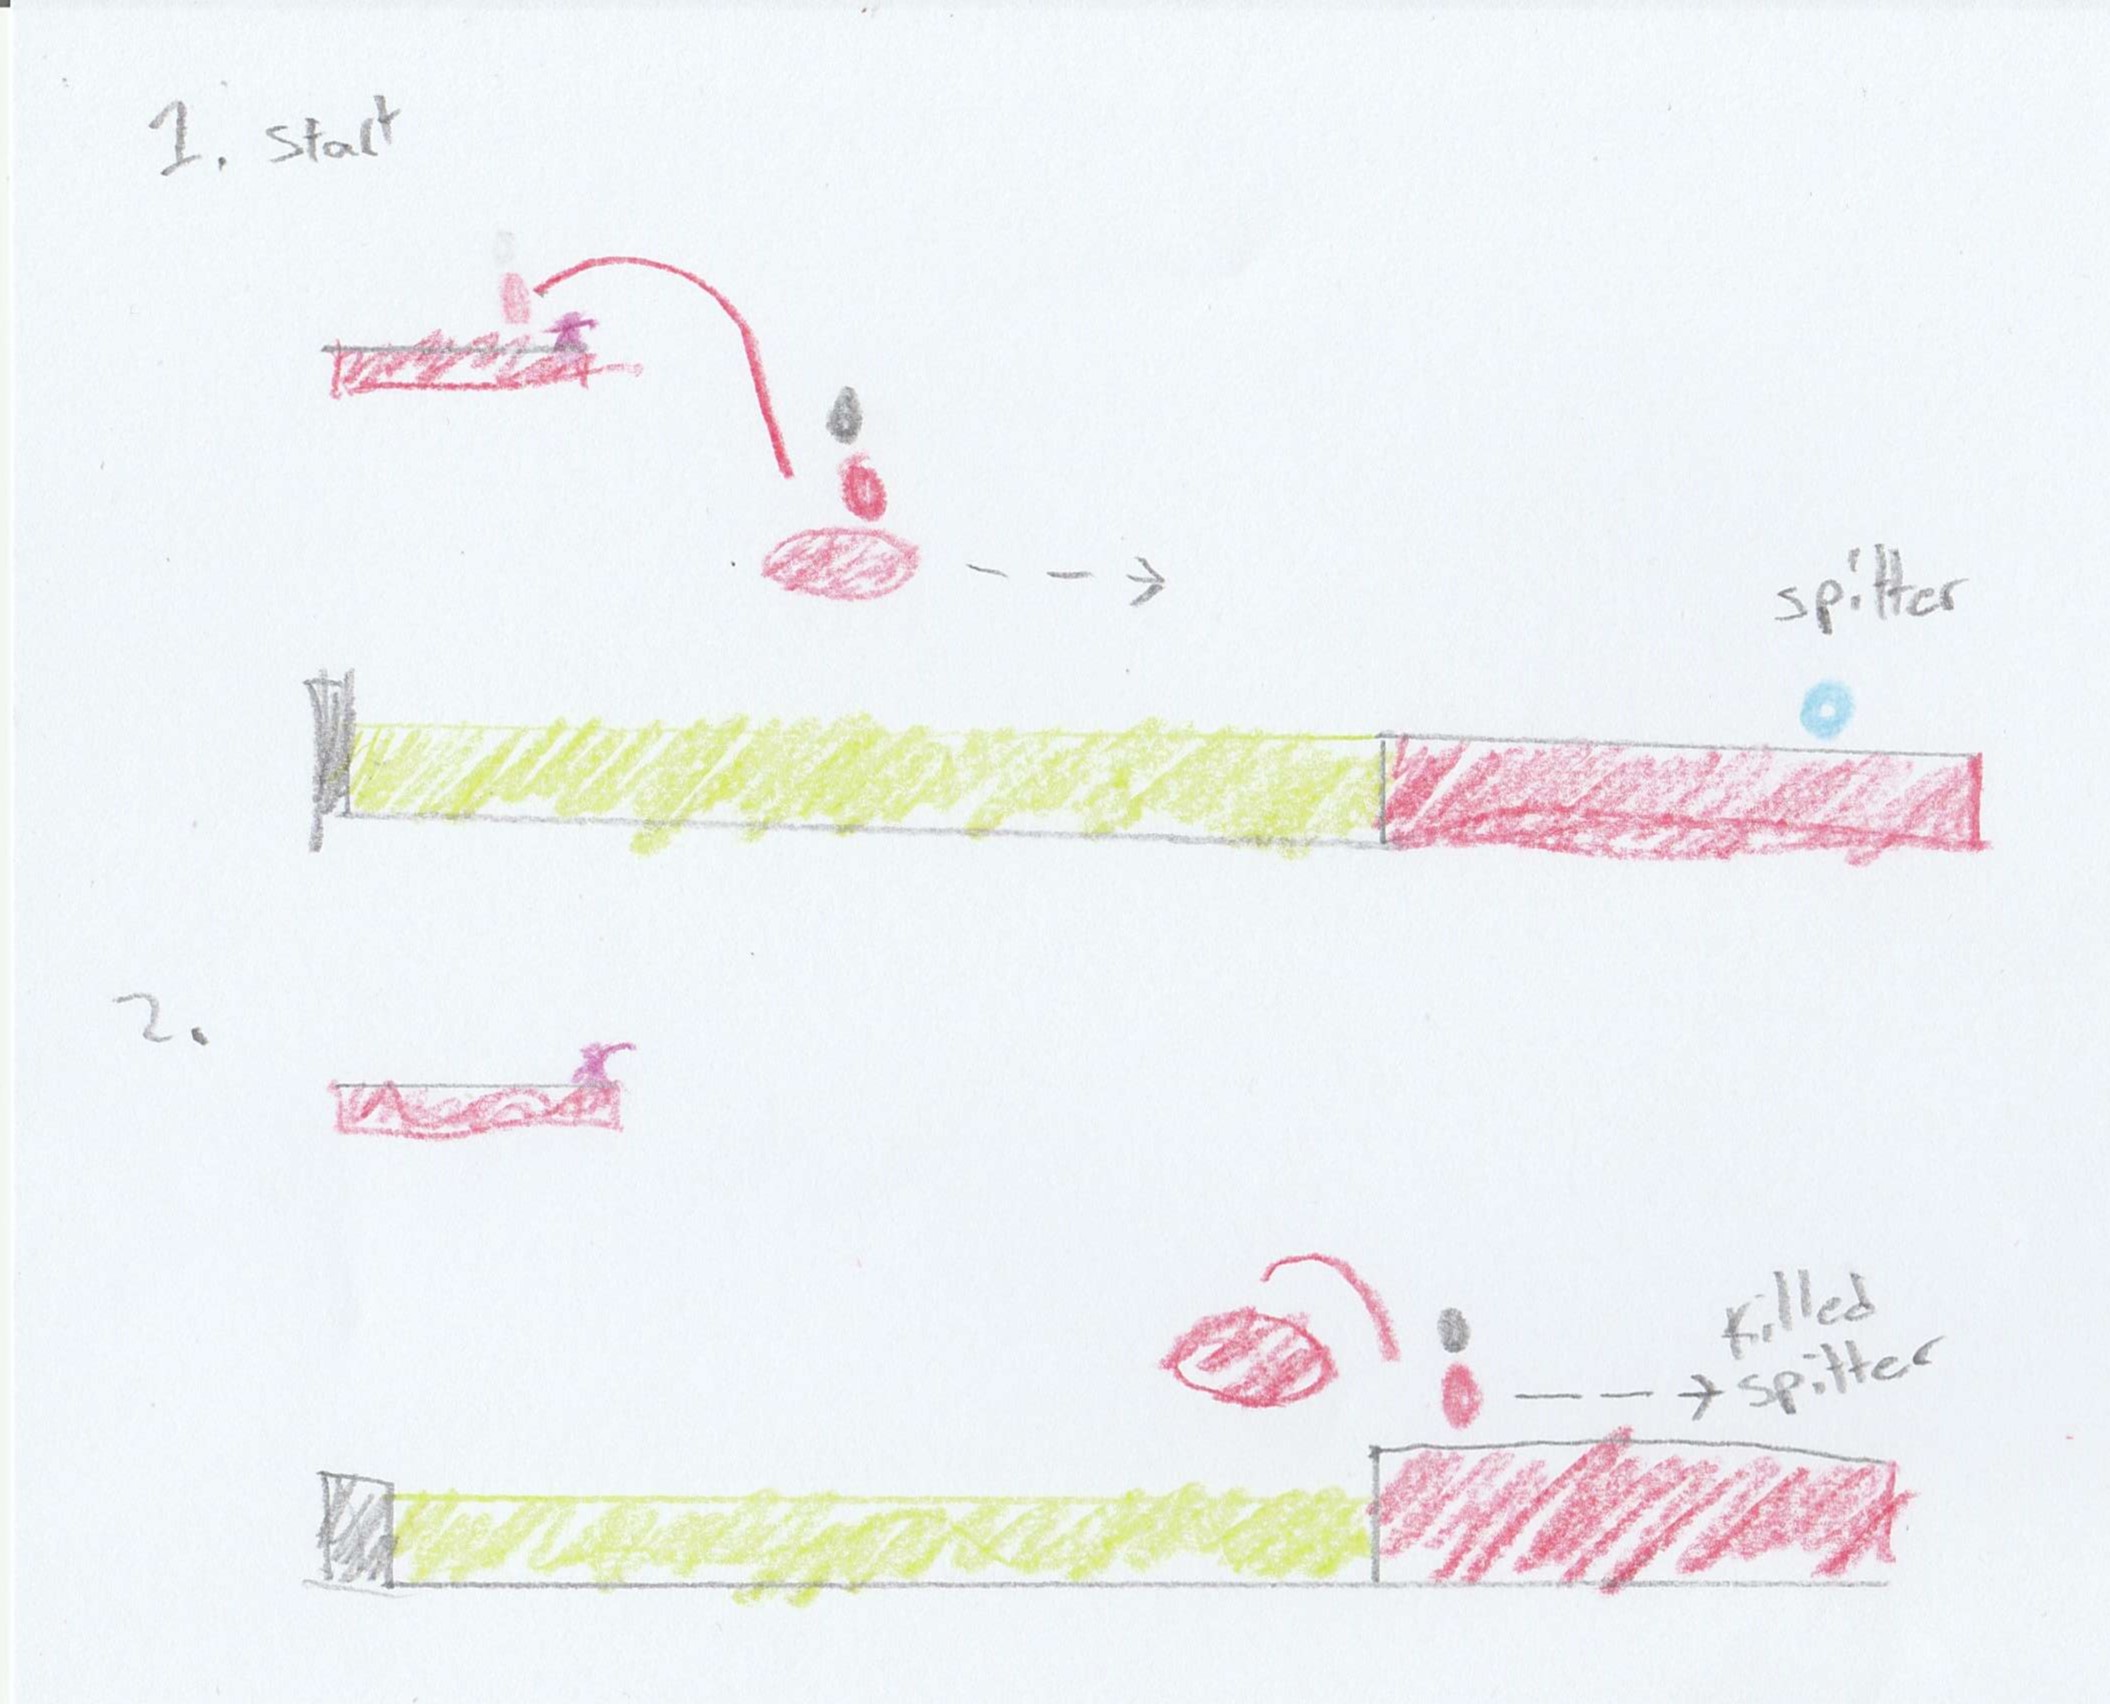 1. start
spitter
2.
killed
spitter